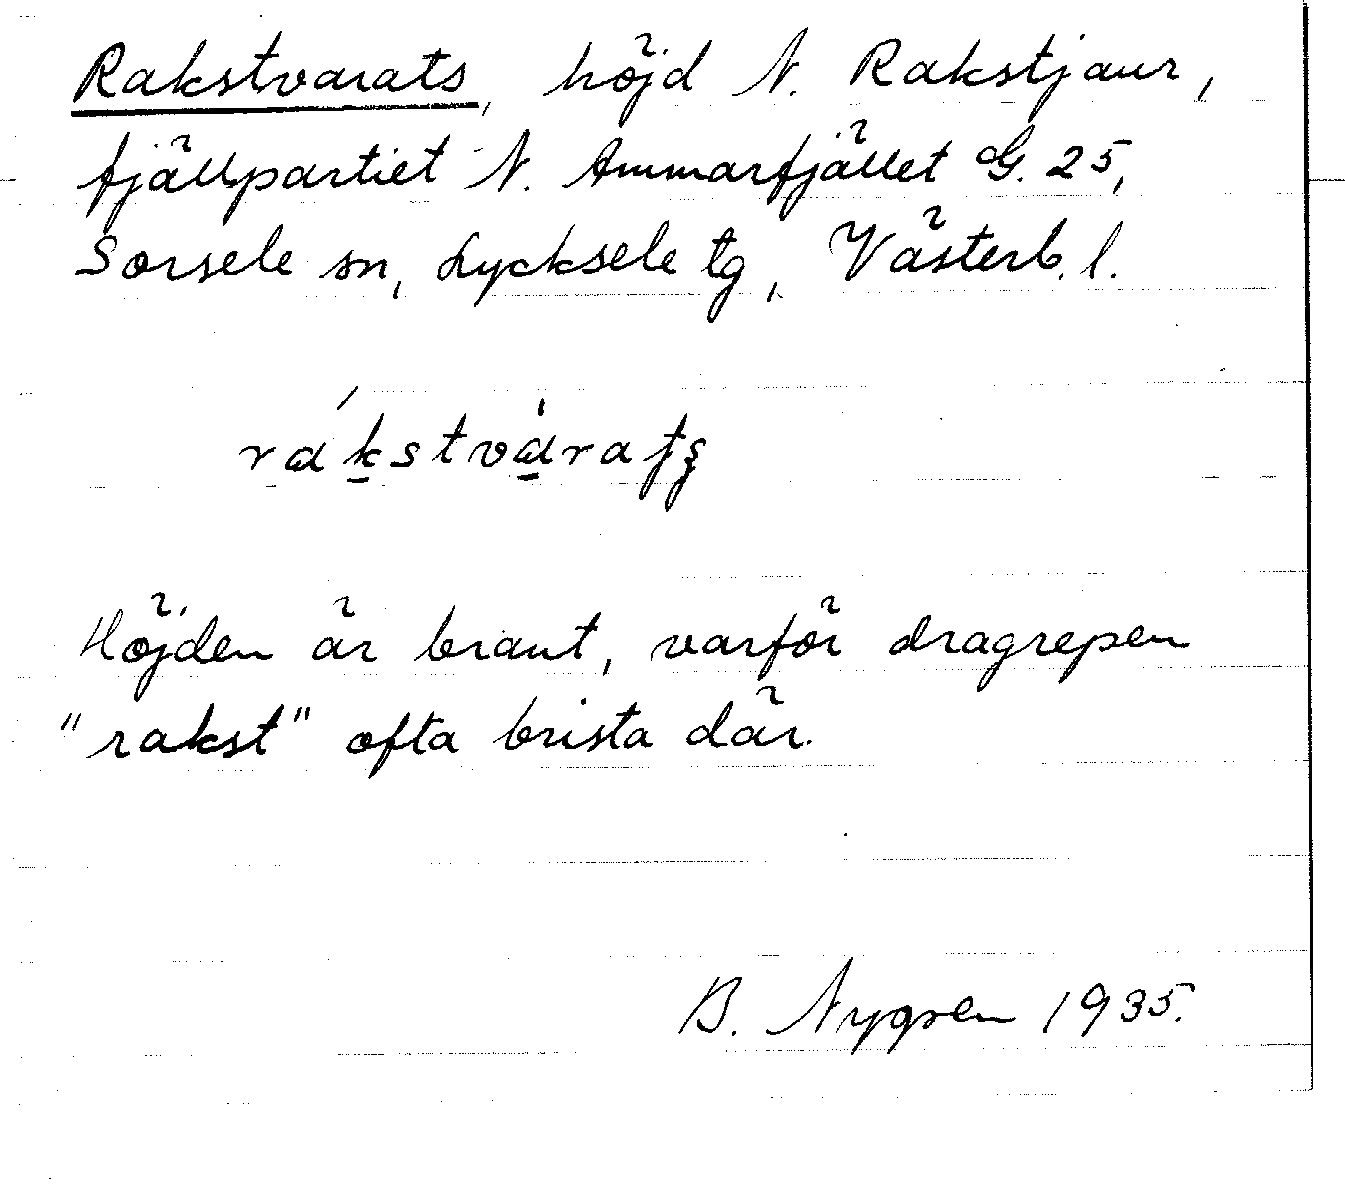 Rakstvarats, höjd N. Rakstjaur,
fjällpartiet N. Ammarfjället G. 25,
Sorsele sn, Lycksele tg, Västerb. l.
rɑ́k̲stvɑ̲̍raţş
Höjden är brant, varför dragrepen
"rakst" ofta brista där.
B. Nygren 1935.